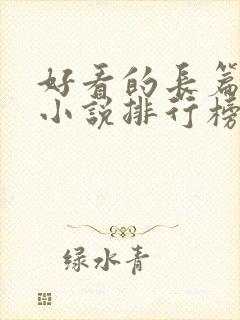 好看的長篇
小說排行榜
绿水青